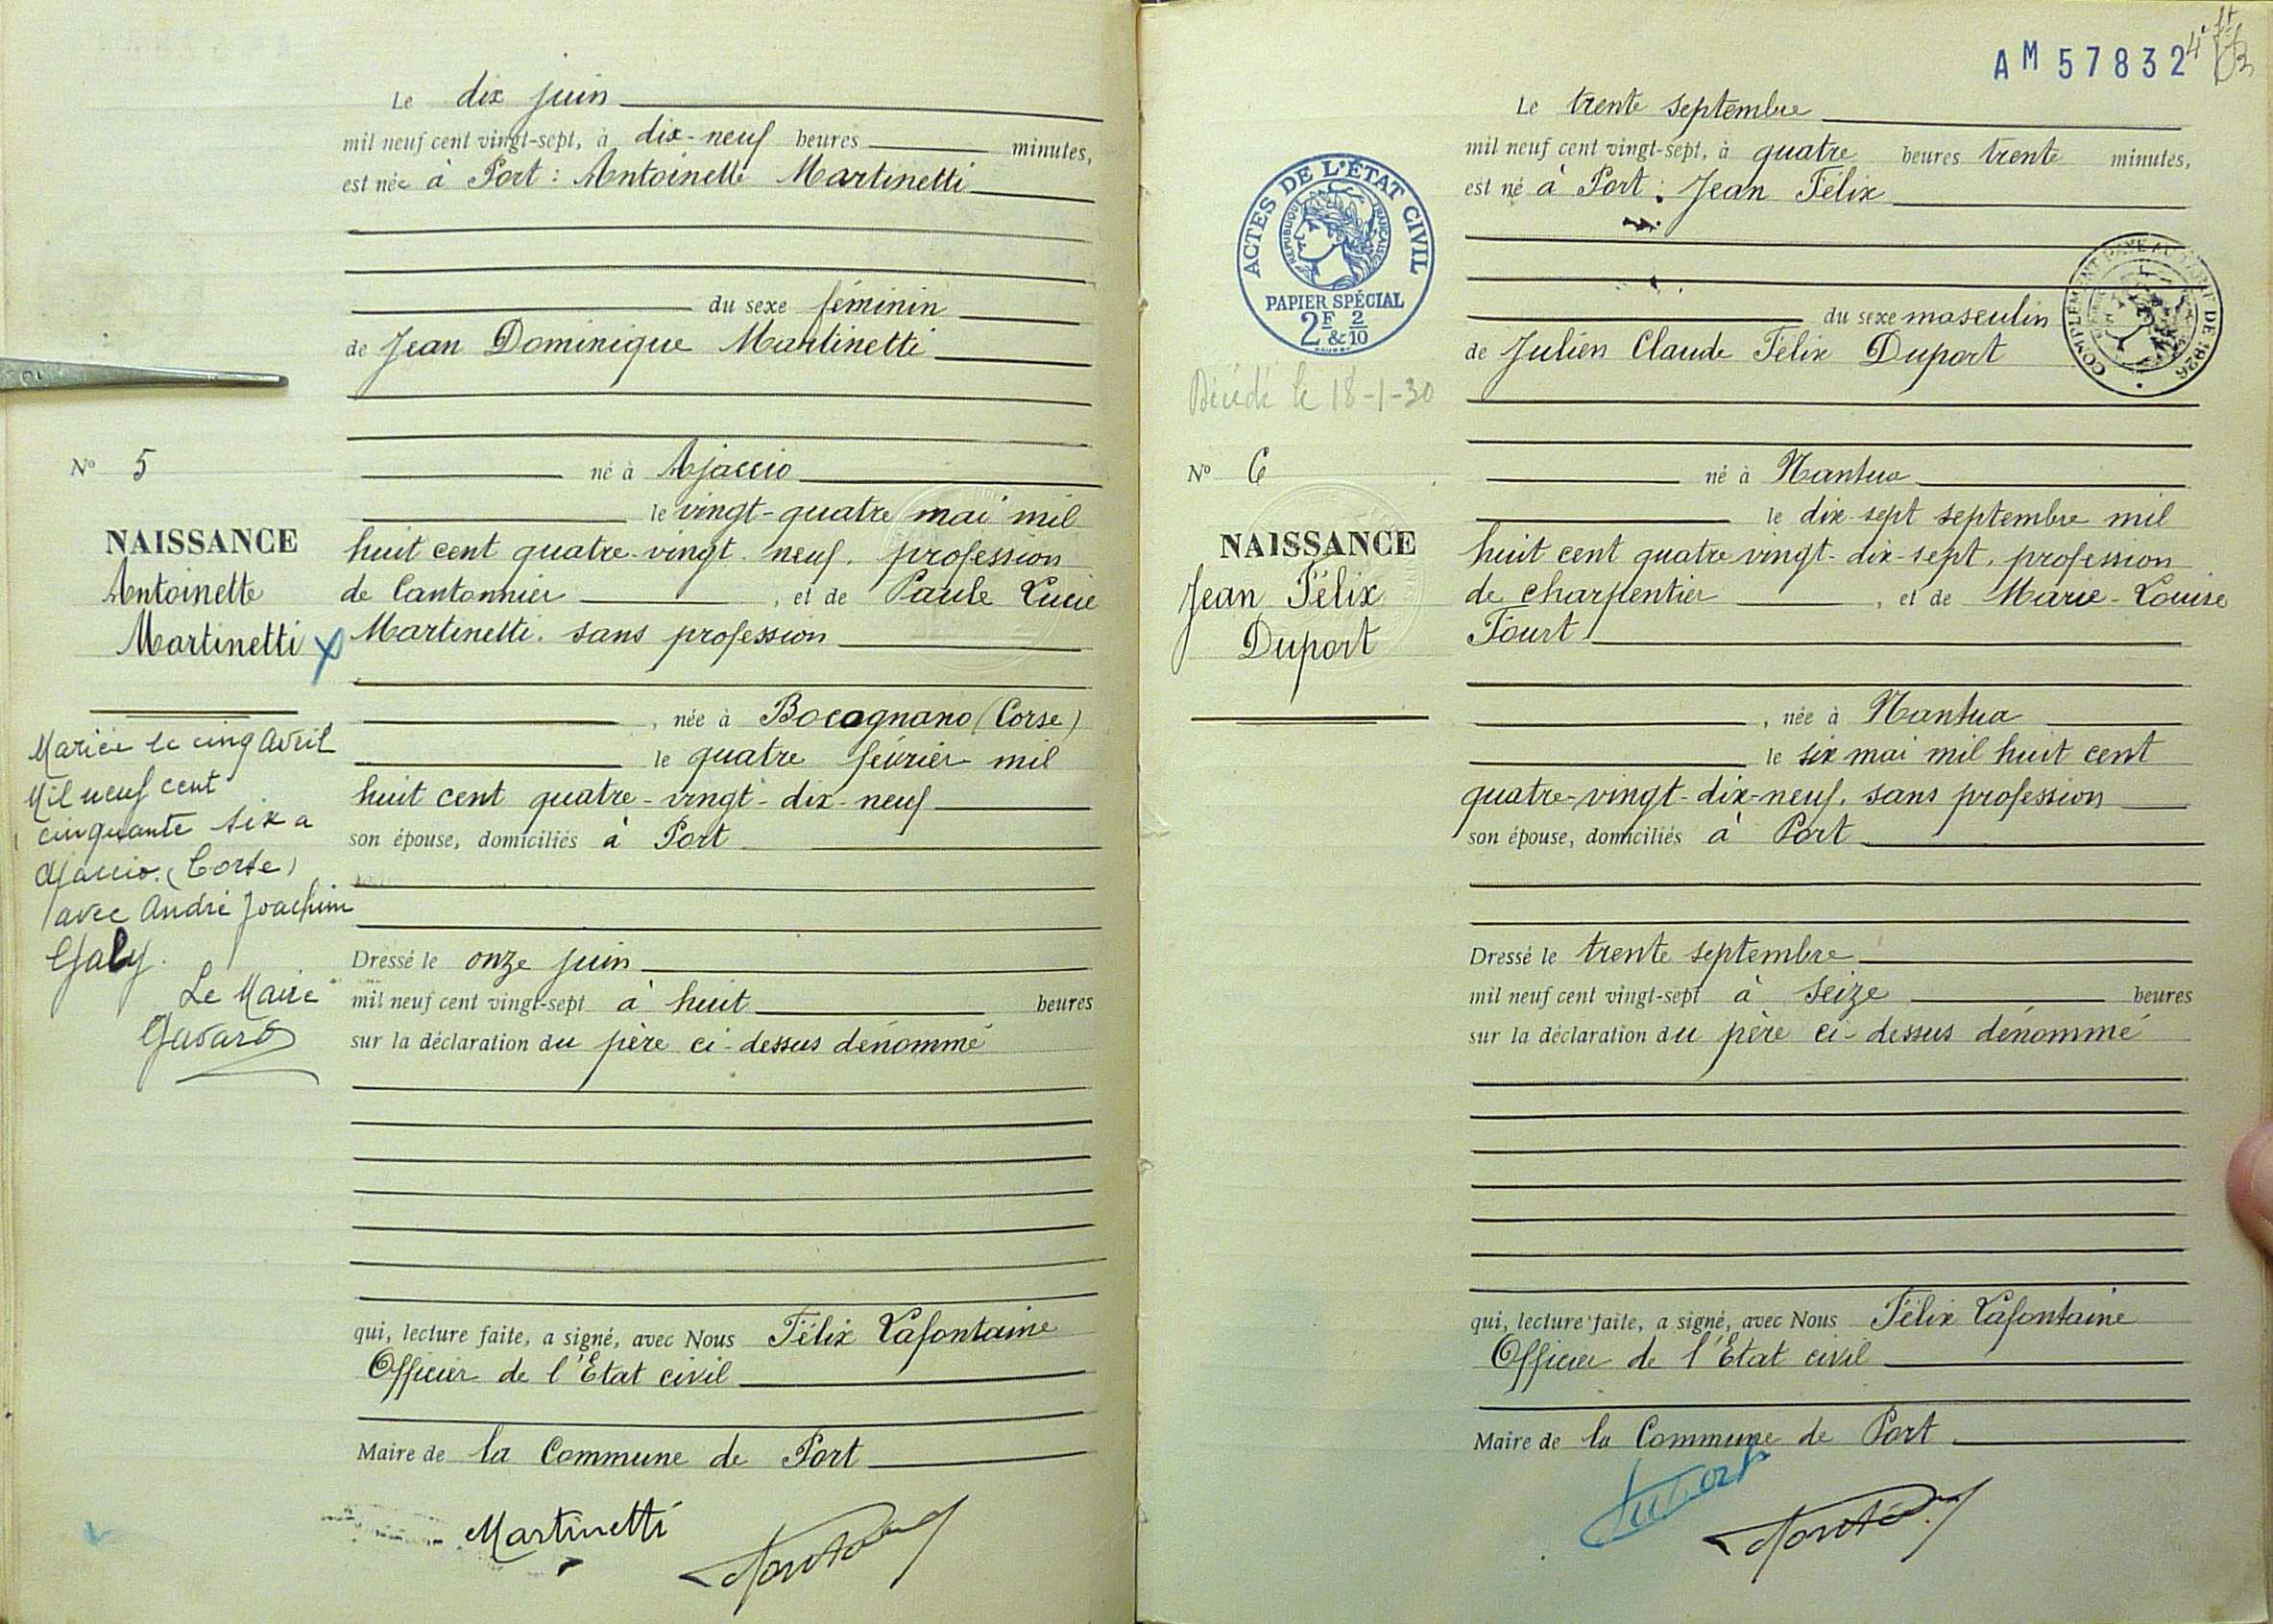 Le dix juin
mil neuf cent vingt-sept, à dix-neuf heures minutes,
est née à Port : Antoinette Martinetti
du sexe féminin
de Jean Dominique Martinetti
né à Ajaccio
le vingt-quatre mai mil
huit cent quatre-vingt-neuf. profession
de Cantonnier, et de Paule Lucie
Martinetti. sans profession
, née à Bocognano (Corse)
le quatre février mil
huit cent quatre-vingt-dix-neuf
son épouse, domiciliés à Port
Dressé le onze juin
mil neuf cent vingt-sept à huit heures
sur la déclaration du père ci-dessus dénommé
qui, lecture faite, a signé, avec Nous Félix Lafontaine
Officier de l'Etat civil
Maire de la Commune de Port
Martinetti
No 5
NAISSANCE
Antoinette
Martinetti
Mariée le cinq Avril
Mil neuf cent
cinquante six a
Ajaccio. (Corse)
avec André Joachim
Galy.
Le Maire
AM 57832
Le trente septembre
mil neuf cent vingt-sept, à quatre heures trente minutes,
est né à Port : Jean Félix
du sexe masculin
de Julien Claude Félix Duport
né à Nantua
le dix-sept septembre mil
huit cent quatre vingt-dix-sept. profession
de charpentier, et de Marie-Louise
Tourt
, née à Nantua
le six mai mil huit cent
quatre-vingt-dix-neuf. sans profession
son épouse, domiciliés à Port
Dressé le trente septembre
mil neuf cent vingt-sept à seize heures
sur la déclaration du père ci-dessus dénommé
qui, lecture faite, a signé, avec Nous Félix Lafontaine
Officier de l'Etat civil
Maire de la Commune de Port
ACTES DE L'ÉTAT CIVIL
RÉPUBLIQUE FRANÇAISE
PAPIER SPÉCIAL
2F & 2/10
COMPLÉMENT PAYÉ AU DE 1926
Décédé le 18-1-30
No 6
NAISSANCE
Jean Félix
Duport